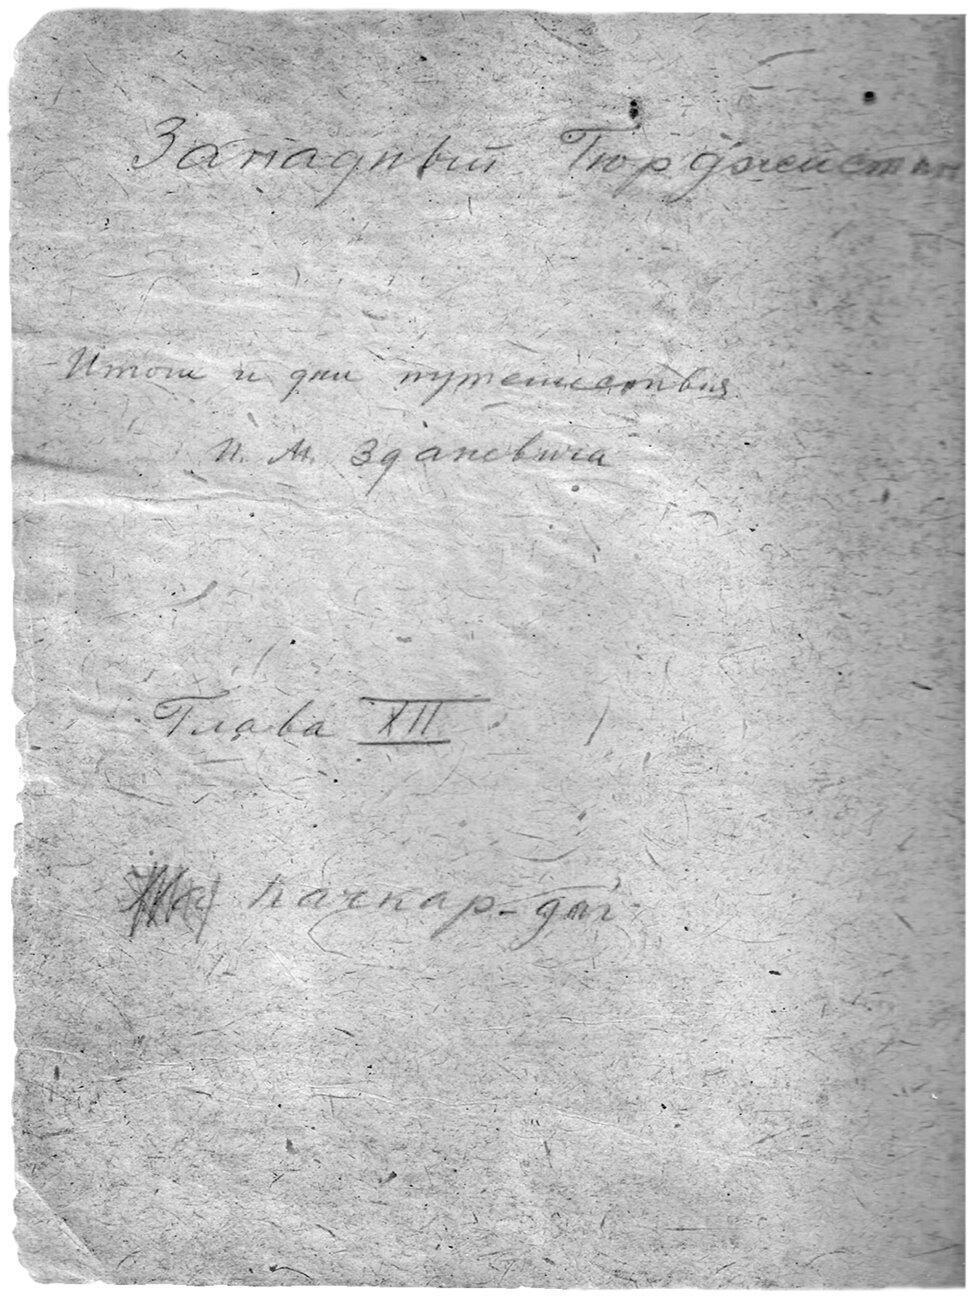 Западный Гюрджистан
Итоги и дни путешествия
И. М. Зданевича
Глава XII
Качкар-даг